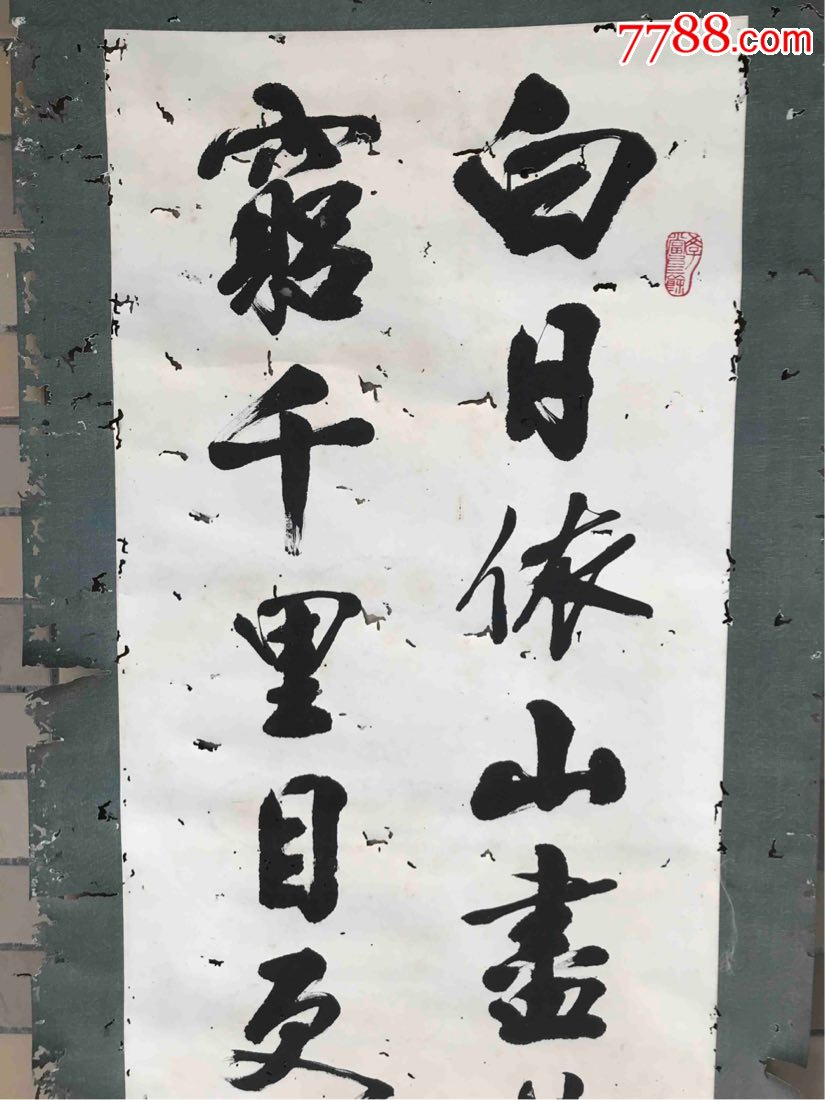 7788.com
白日依山盡
窮千里目更